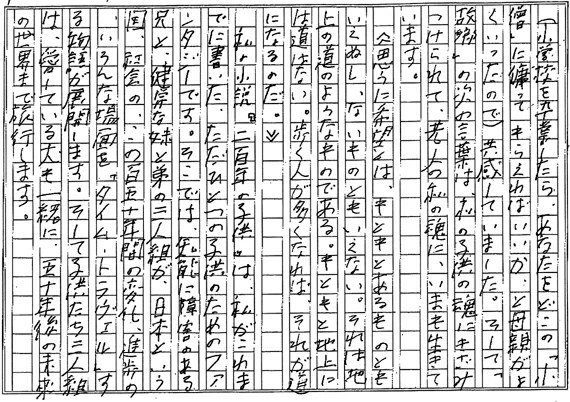 （「小学校を卒業したら、あなたをどこの「小
僧」に傭ってもらえればいいか、と母親がよ
くいったので）共感していました。そして「
故郷」の次の言葉は、私の子供の魂にきざみ
つけられて、老人の私の魂に、いまも生きて
います。
《思うに希望とは、もともとあるものとも
いえぬし、ないものともいえない。それは地
上の道のようなものである。もともと地上に
は道はない。歩く人が多くなれば、それが道
になるのだ。》
私の小説『二百年の子供』は、私がこれま
でに書いた、ただひとつの子供のためのファ
ンタジーです。そこでは、知能に障害のある
兄と、健常な妹と弟の三人組が、日本という
国、社会の、この百五十年間の変化、進歩の
、いろんな場面を「タイム・トラヴェル」す
る物語が展開します。そして子供たち三人組
は、愛している犬も一緒に、五十年後の未来
の世界まで旅行します。